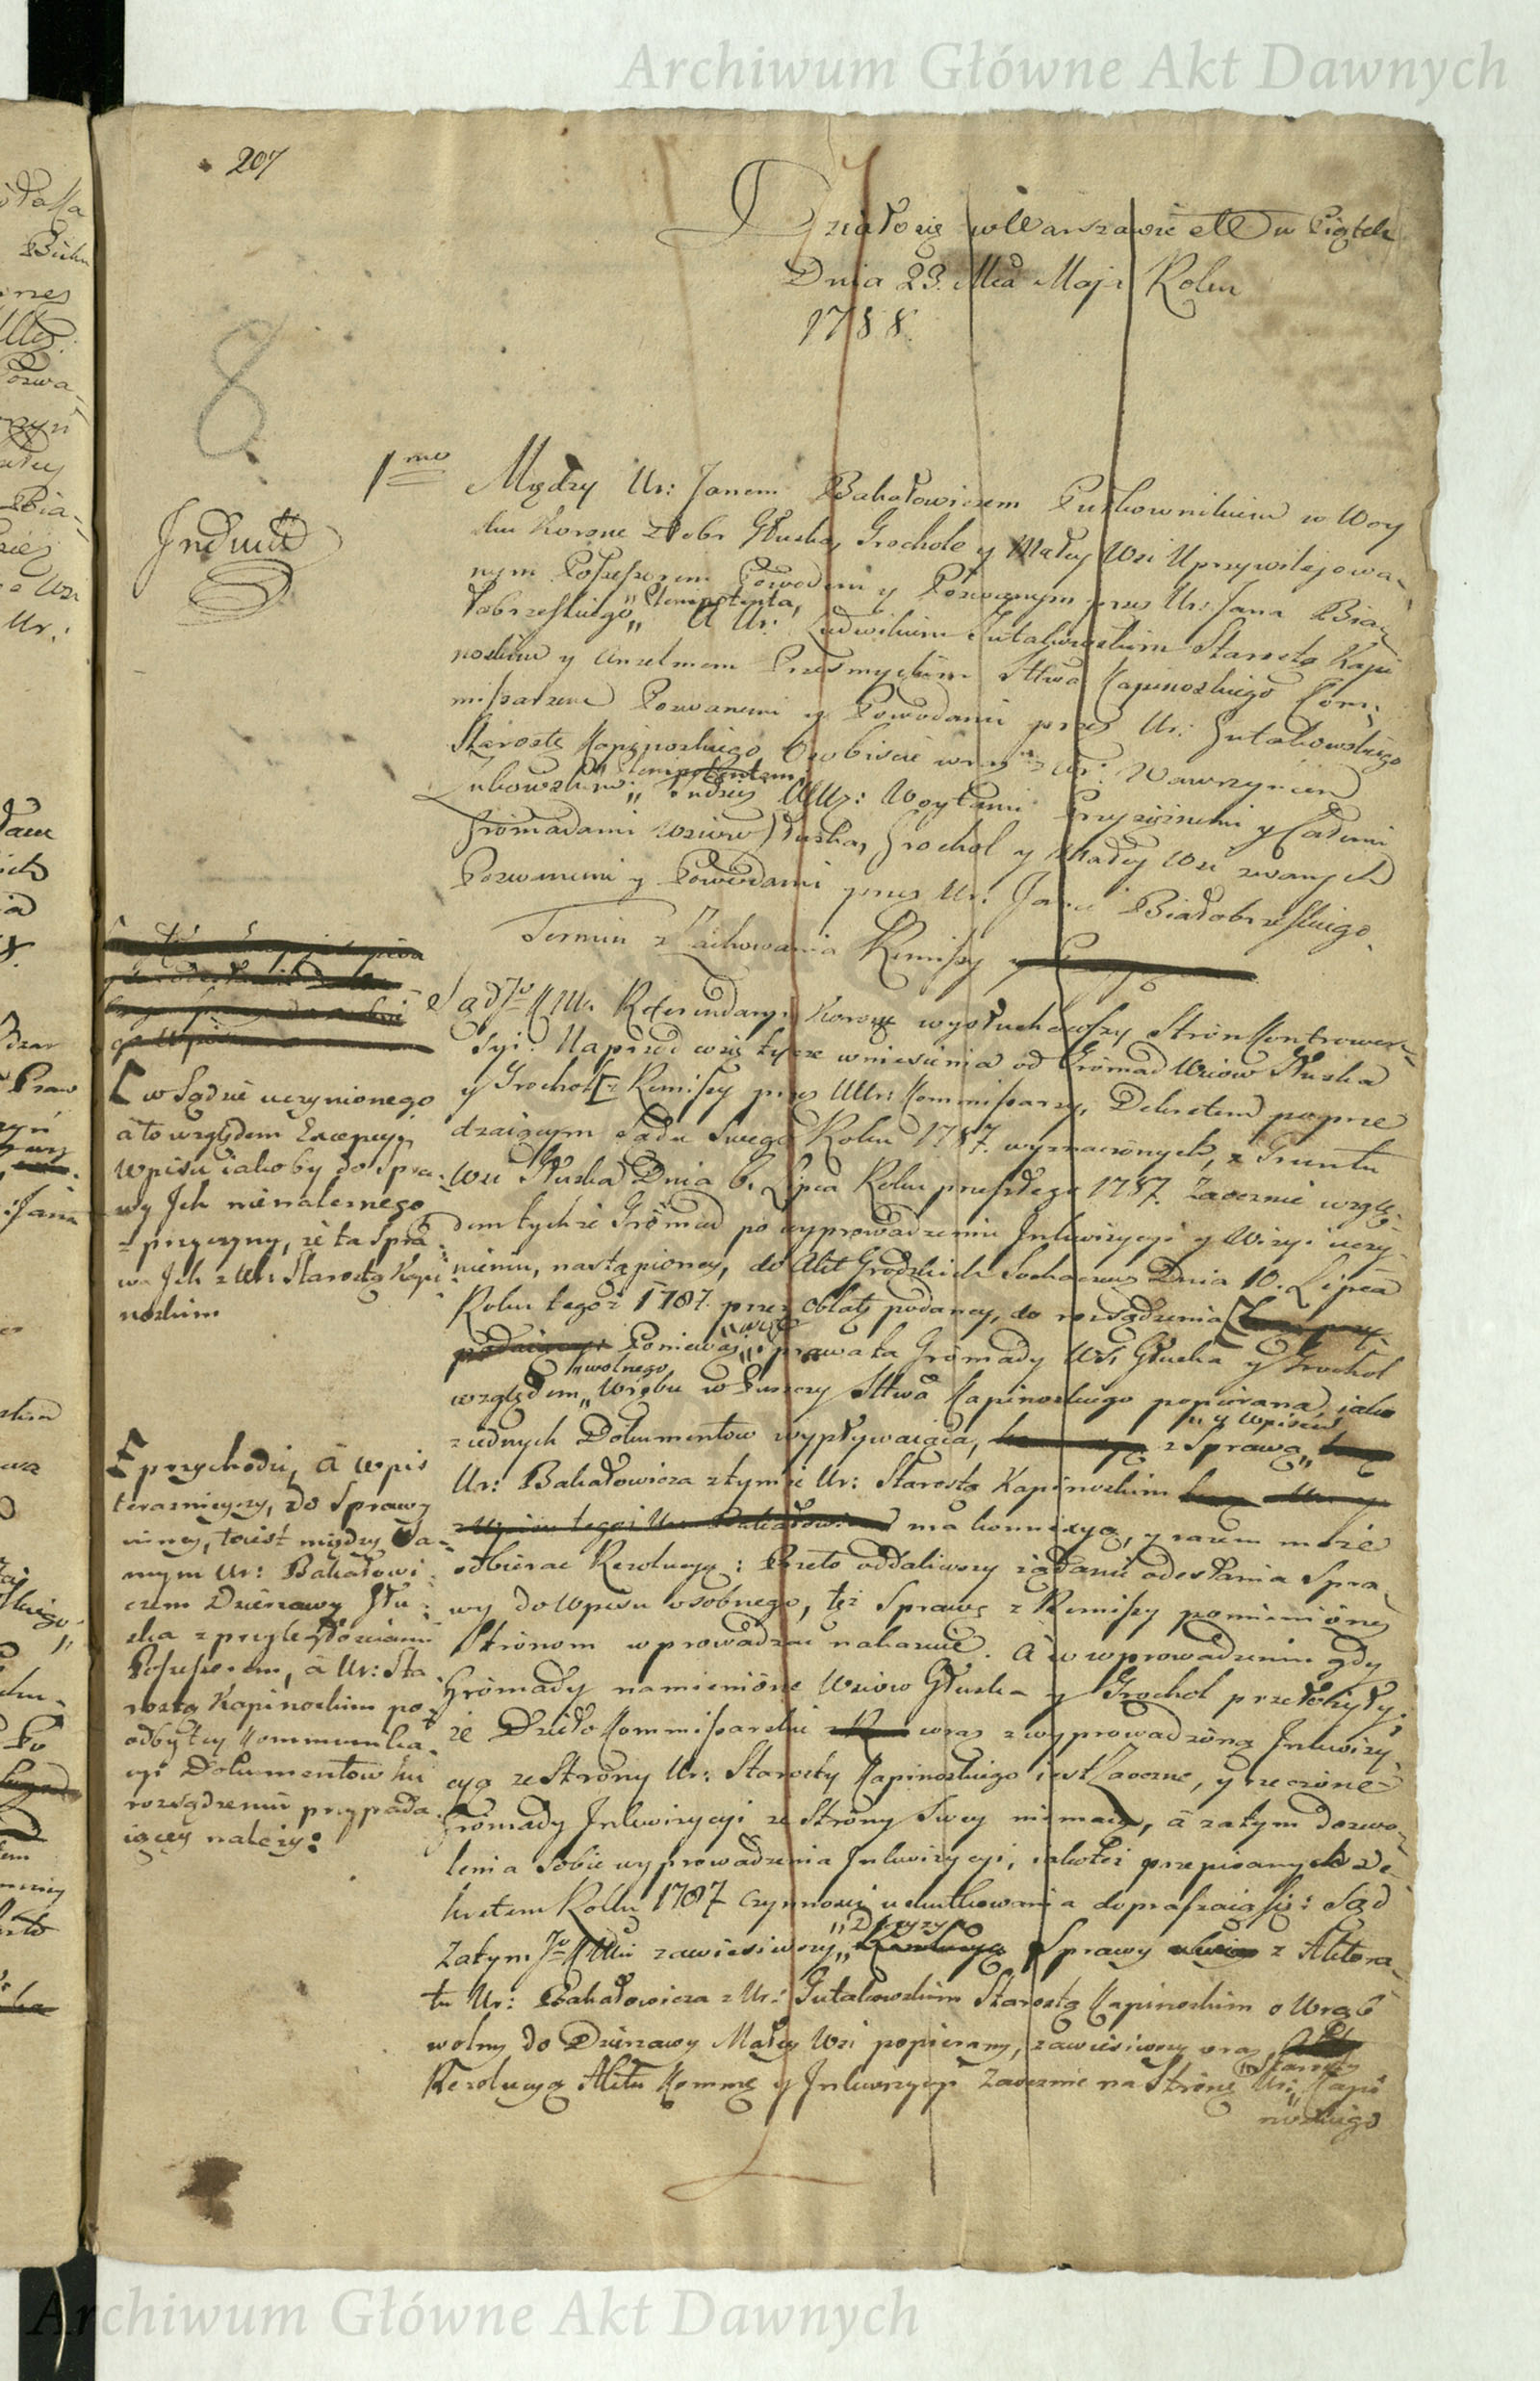 Archiwum Główne Akt Dawnych
207
Działo się w Warszawie etc w Piątek
Dnia 23. Mca Maja Roku
1788.
8
Induct
1mo Między Ur: Janem Bakałowiczem Pułkownikiem w Woy
sku Koronn: z Dobr Głuska, Grochole y Małey Wsi Uprzywilejowa-
nym Possessorem Powodem y Pozwanym przez Ur: Jana Biało-
brzeskiego „Plenipotenta, A Ur: Ludwikiem Gutakowskim Starostą Kapi
noskim y Anzelmem Przesmyckim Sttwa Kapinoskiego Com-
missarzem Pozwanemi y Powodami przez Ur: Gutakowskiego
Starostę Kapinoskiego Osobiście wraz z Ur: Wawrzyńcem
Łukowskim „Plenipotentem, tudzież UUr: Woytami Przysiężnemi y Całemi
Gromadami Wsiow Głuska, Grochol y Małey Wsi zwanych
Pozwanemi y Powodami przez Ur: Jana Białobrzeskiego.
Termin z Zachowania Remissy
Sąd Jo K Mci Referendarski Koronny wysłuchawszy Stron Kontrower-
syi. Naprzod co się tycze wniesienia od Gromad Wsiow Głuska
y Grochol [z Remissy przez UUr: Kommissarzy, Dekretem poprze
dzaiącym Sądu Swego Roku 1787. wyznaczonych, z Gruntu
Wsi Głuska Dnia 6. Lipca Roku przeszłego 1787. Zaocznie wzglę-
dem tychże Gromad po wyprowadzeniu Inkwizycyi y Wizyi uczy-
nieniu, nastąpioney, do Akt Grodzkich Sochaczew: Dnia 10. Lipca
Roku tegoż 1787. przez Oblatę podaney, do rozsądzenia
Ponieważ sprawa ta Gromady Wsi Głuska y Grochol
względem „wolnego Wrębu w Puszczy Sttwa Kapinoskiego popierana, iako
z iednych Dokumentow wypływaiąca, z Sprawą „y Wpisem
Ur: Bakałowicza z tymże Ur: Starostą Kapinoskim
z Wpisu tegoż Ur: Bakałowicza ma konnexyą, y razem może
odbierać Rezolucyą: Przeto oddaliwszy żądanie odesłania Spra-
wy do Wpisu osobnego, też Sprawę z Remissy pomienioney
Stronom wprowadzać nakazuie. A w wprowadzeniu gdy
Gromady namienione Wsiow Głuska y Grochol przełożyły,
że Dzieło Kommissarskie wraz z wyprowadzoną Inkwizy
cyą ze Strony Ur: Starosty Kapinoskiego iest Zaoczne, y rzeczone
Gromady Inkwizycyi ze Strony Swey niemaią, a zatym dozwo-
lenia Sobie wyprowadzenia Inkwizycyi, iakoteż przepisanych De-
kretem Roku 1787 czynności uskutkowania dopraszaią się: Sąd
Zatym Jo K Mci zawiesiwszy „Decyzyą Sprawy z Aktora-
tu Ur: Bakałowicza z Ur: Gutakowskim Starostą Kapinoskim o Wrąb
wolny do Dzierżawy Małey Wsi popierany, zawiesiwszy oraz
Rezolucyą Aktu Kommis: y Inkwizycyi Zaocznie na Stronę Ur: „Starosty Kapi
noskiego
[w Sądzie uczynionego
a to względem Excepcyi
Wpisu iakoby do Spra-
wy Ich nienależnego
z przyczyny, że ta Spra-
wa Ich z Ur: Starostą Kapi
noskim
[przychodzi, a Wpis
teraznieyszy, do Sprawy
inney, to iest między Sa-
mym Ur: Bakałowi
czem Dzierżawy Głu-
ska z przyległościami
Possessorem, a Ur: Sta
rostą Kapinoskim po
odbytey Kommunika-
cyi Dokumentow ku
rozsądzeniu przypada
iącey należy:
Archiwum Główne Akt Dawnych